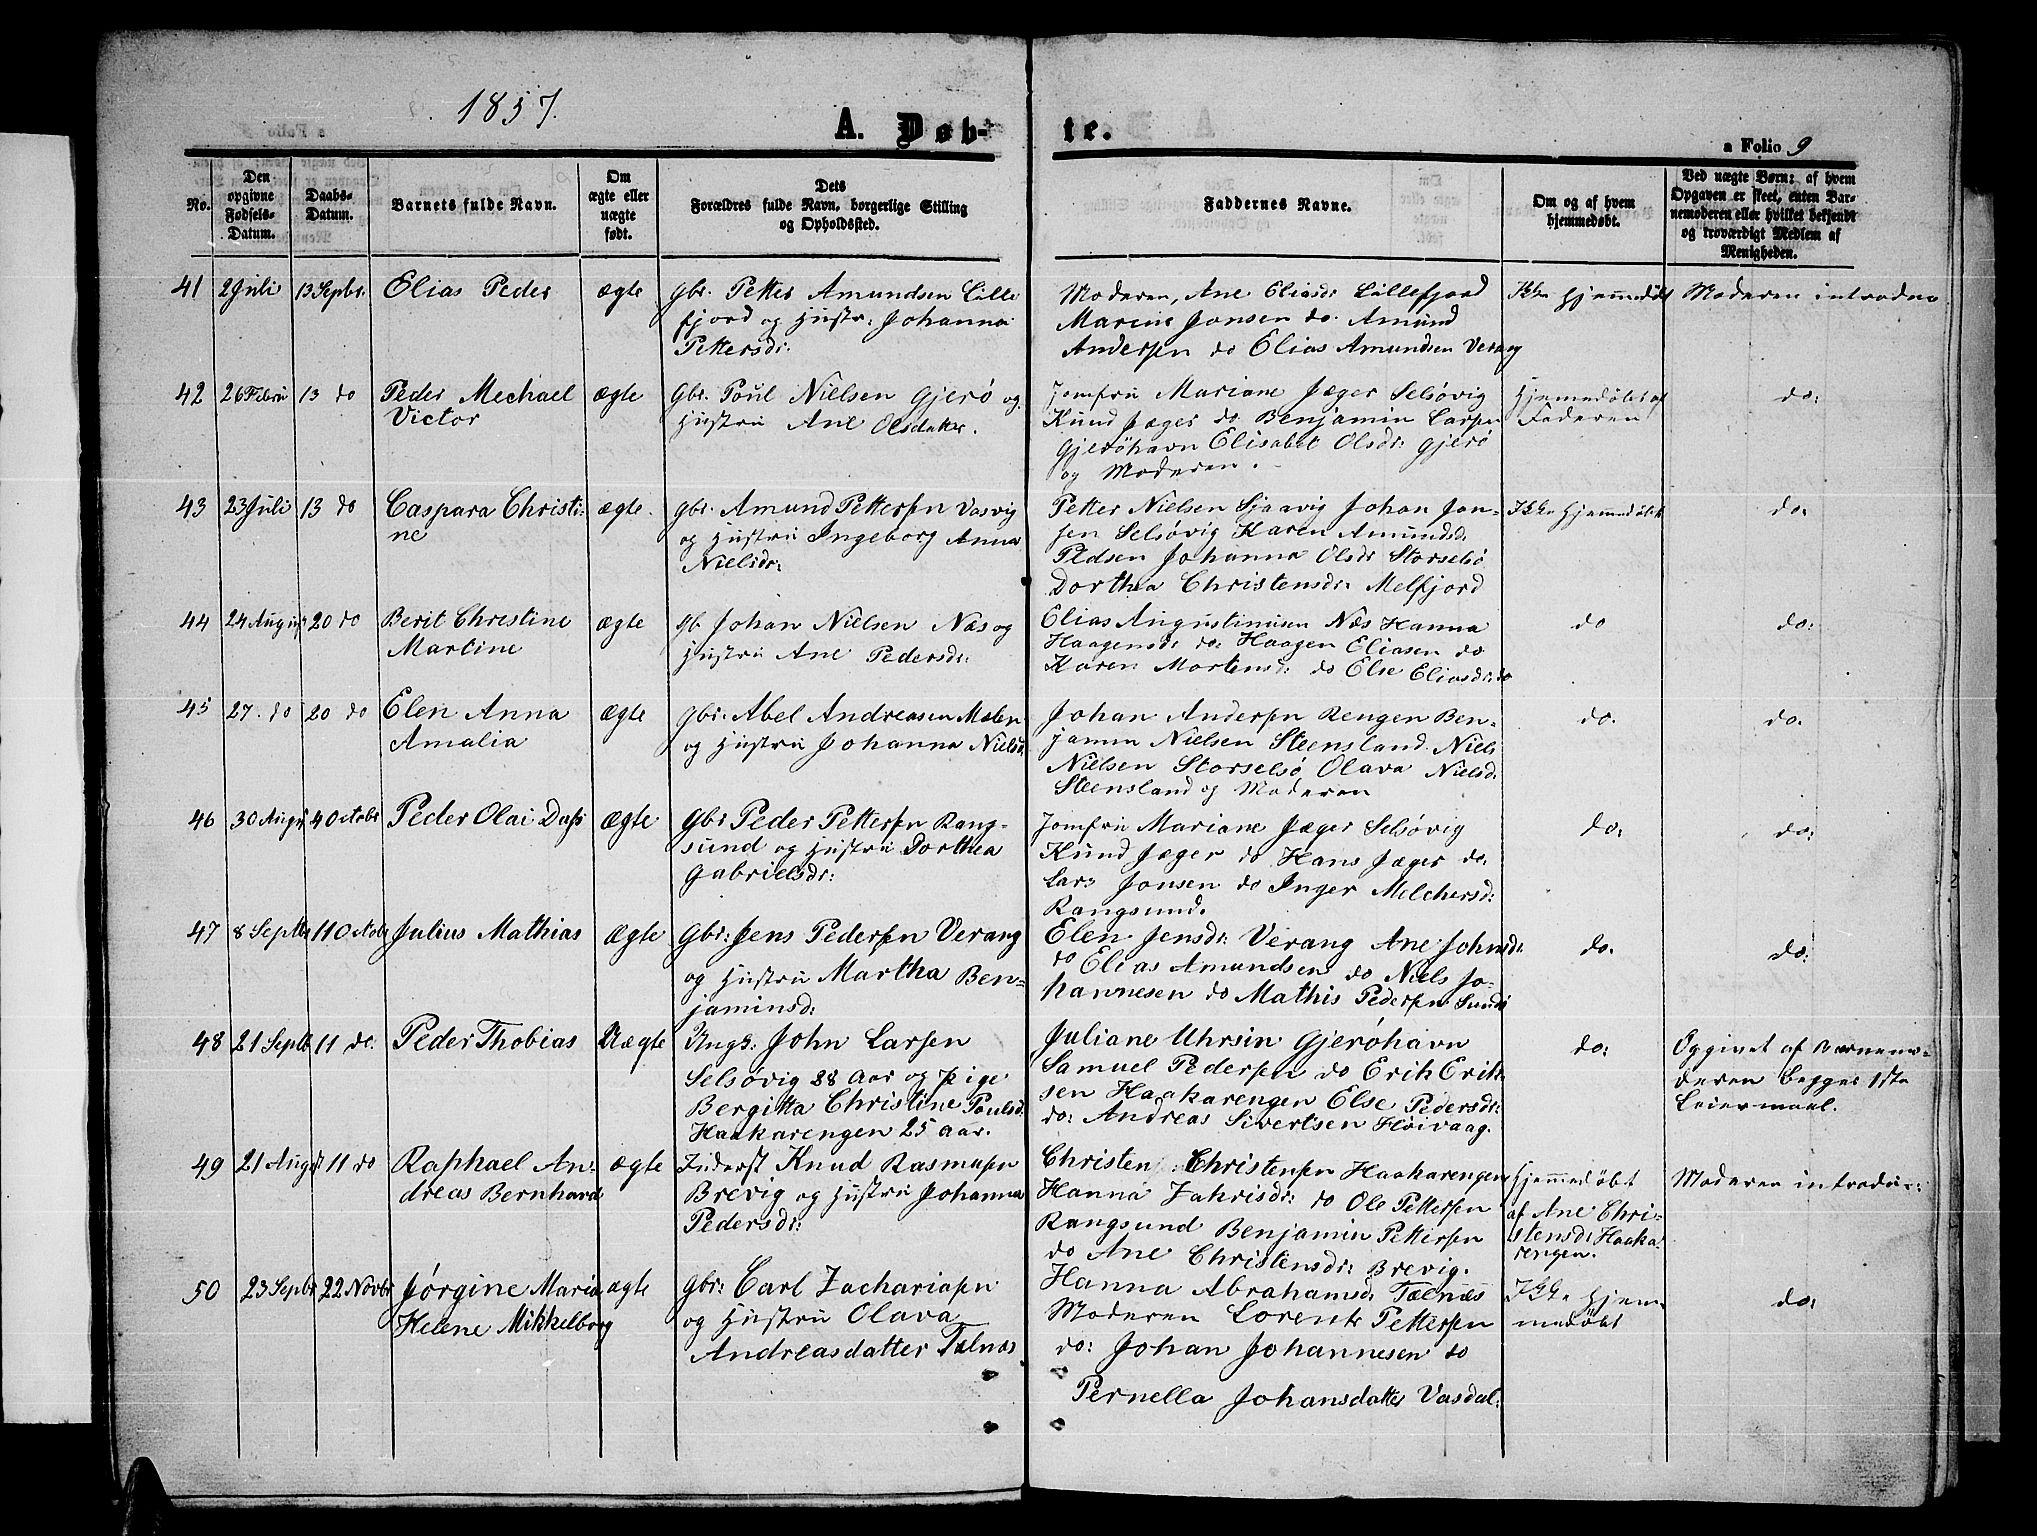 1857.
A. Døb-
te.
a Folio 9
No.
Den
opgivne
Fødsels-
Datum.
Daabs-
Datum.
Barnets fulde Navn.
Om
ægte eller
uægte
født.
Dets
Forældres fulde Navn, borgerlige Stilling
og Opholdssted.
Faddernes Navne.
Om og af hvem
hjemmedøbt.
Ved uægte Børn: af hvem
Opgaven er skeet, enten Bar-
nemoderen eller hvilket bekjendt
og troværdigt Medlem af
Menigheden.
41 2 Juli 13 Septbr. Elias Peder ægte Gbr. Petter Amundsen Lille
fjord og Hustr: Johanna
Pettersdr.
Moderen, Ane Eliasdr Lillefjord
Marine Jonsen do. Amund
Andersen do Elias Amundsen Verang
Ikke Hjemmedøbt
Moderen introduc
42 26 Febru 13 do Peder Mechael
Victor
ægte Gbr. Poul Nielsen Gjerø og
Hustru Ane Olsdatter.
Jomfru Mariane Jæger Selsøvig
Knud Jæger do Benjamin Larsen
Gjerøhavn Elisabet Olsdr: Gjerø
og Moderen.
Hjemmedøbt af
Faderen
do:
43 23 Juli 13 do Caspara Christi-
ne
ægte. Gbr. Amund Pettersen Vasvig
og Hustru Ingeborg Anna
Nielsdr:
Petter Nielsen Sjaavig Johan Jon-
sen Selsøvig Karen Amundsd.
Pedsen Johanna Olsdr Storselsø
Dorthea Christensdr: Melfjord
Ikke Hjemmedøbt
do:
44 24 August 20 do Berit Christine
Martine
ægte Gb Johan Nielsen Næs og
Hustru Ane Pedersdr:
Elias Augustinusen Næs Hanna
Haagensdr do: Haagen Eliasen do
Karen Mortensdr: do Else Eliasdr: do
do
do:
45 27. do 20 do Elen Anna
Amalia
ægte Gbr: Abel Andreasen Melen
og Hustru Johanna Nielsd.
Johan Andersen Rengen Ben-
jamin Nielsen Steensland. Niels
Nielsen Storselsø Olava Nielsd:
Steensland og Moderen
do.
do.
46 30 Augst 4 Octobr Peder Olai Dass ægte Gbr Peder Pettersen Rang-
sund og Hustru Dorthea
Gabrielsdr:
Jomfru Mariane Jæger Selsøvig
Knud Jæger do Hans Jæger do.
Lars Jonsen do Inger Melchersd:
Rangsund.
do:
do:
47 8 Septbr 11 Octobr Julius Mathias ægte Gbr: Jens Pedersen Verang
og Hustru Martha Ben-
jaminsd:
Elen Jensdr: Verang Ane Johnsdr:
do Elias Amundsen do Niels Jo-
hannesen do Mathis Pedersen Sundø
do.
do:
48 21 Septb 11 do. Peder Thobias Uægte Ungk: John Larsen
Selsøvig 28 Aar og Pige
Bergitta Christine Paulsd.
Haakarengen 25 aar.
Juliane Uhrsin Gjerøhavn
Samuel Pedersen do Erik Erik-
sen Haakarengen Else Pedersdr:
do: Andreas Sivertsen Høivaag.
do:
Opgivet af Barnemo-
deren begges 1ste
Leiermaal.
49 21 August 11 do Raphael An-
dreas Bernhard
ægte Inderst Knud Rasmusen
Brevig og Hustru Johanna
Pedersdr:
Christen Christensen Haakarengen
Hanna Zakrisdr: do Ole Pettersen
Rangsund Benjamin Pettersen
do Ane Christensdr: Brevig.
Hjemmedøbt
af Ane Chri-
stensd: Haaka-
rengen.
Moderen introdu-:
50 23 Septbr 22 Novbr Jørgine Maria
Helene Mikkelborg
ægte Gbr: Carl Zachariasen
og Hustru Olava
Andreasdatter Telnæs
Hanna Abrahamsd: Telnæs
Moderen Lorents Pettersen
do: Johan Johannesen do
Pernella Johansdatter Vasdal:
Ikke Hjem-
medøbt
do: